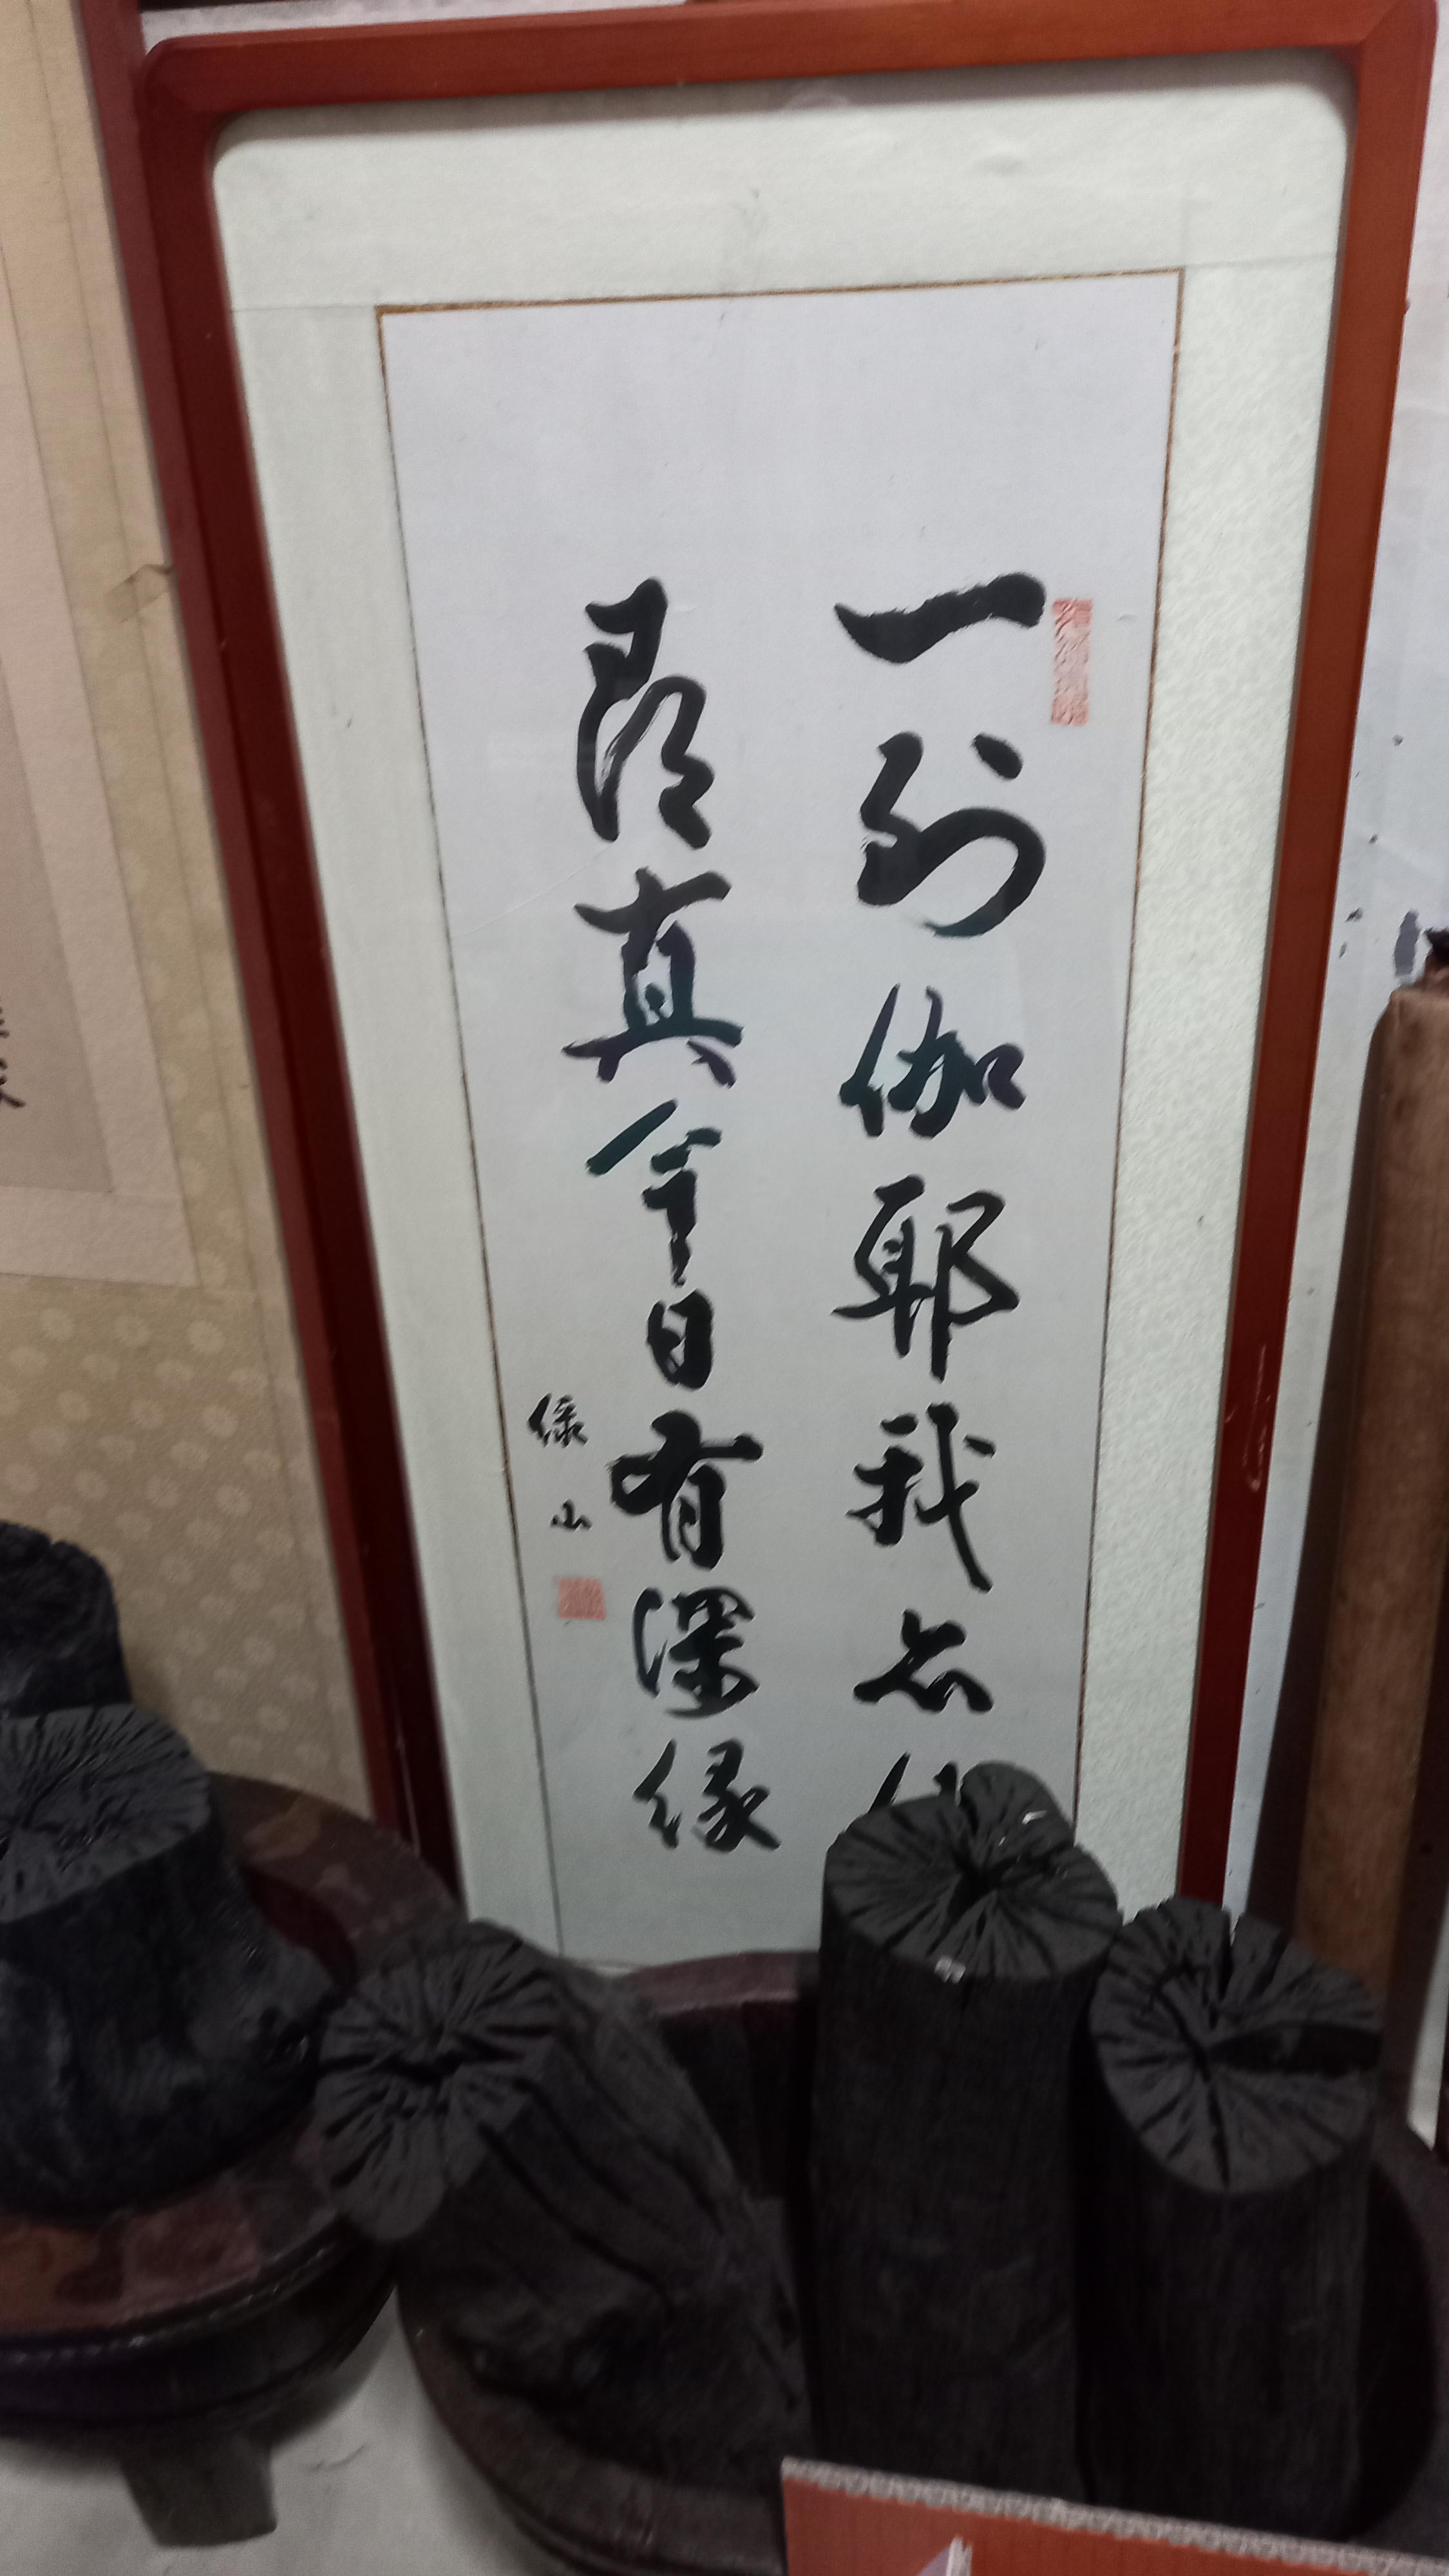 一到伽耶我亦
尋真今日有深緣
山